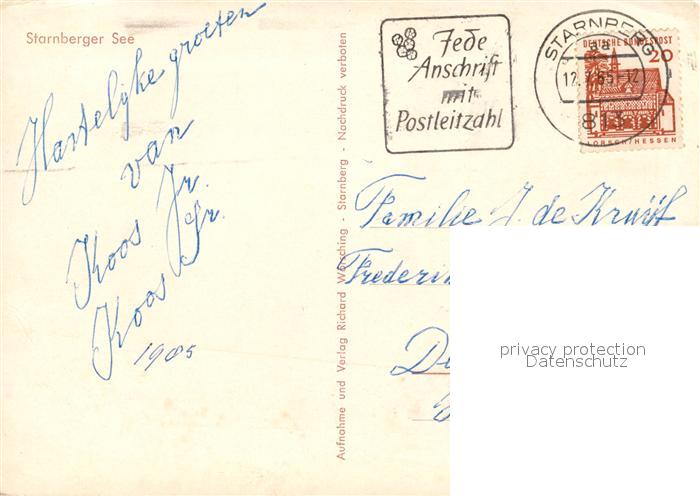 Starnberger See
Hartelijke groeten
van
Koos Jr.
Koos Sr.
1965
Aufnahme und Verlag Richard Wörsching - Starnberg - Nachdruck verboten
Jede
Anschrift
mit
Postleitzahl
STARNBERG
12.7.65-12
813
DEUTSCHE BUNDESPOST
20
LORSCH/HESSEN
Familie J. de Kruijf
privacy protection
Datenschutz